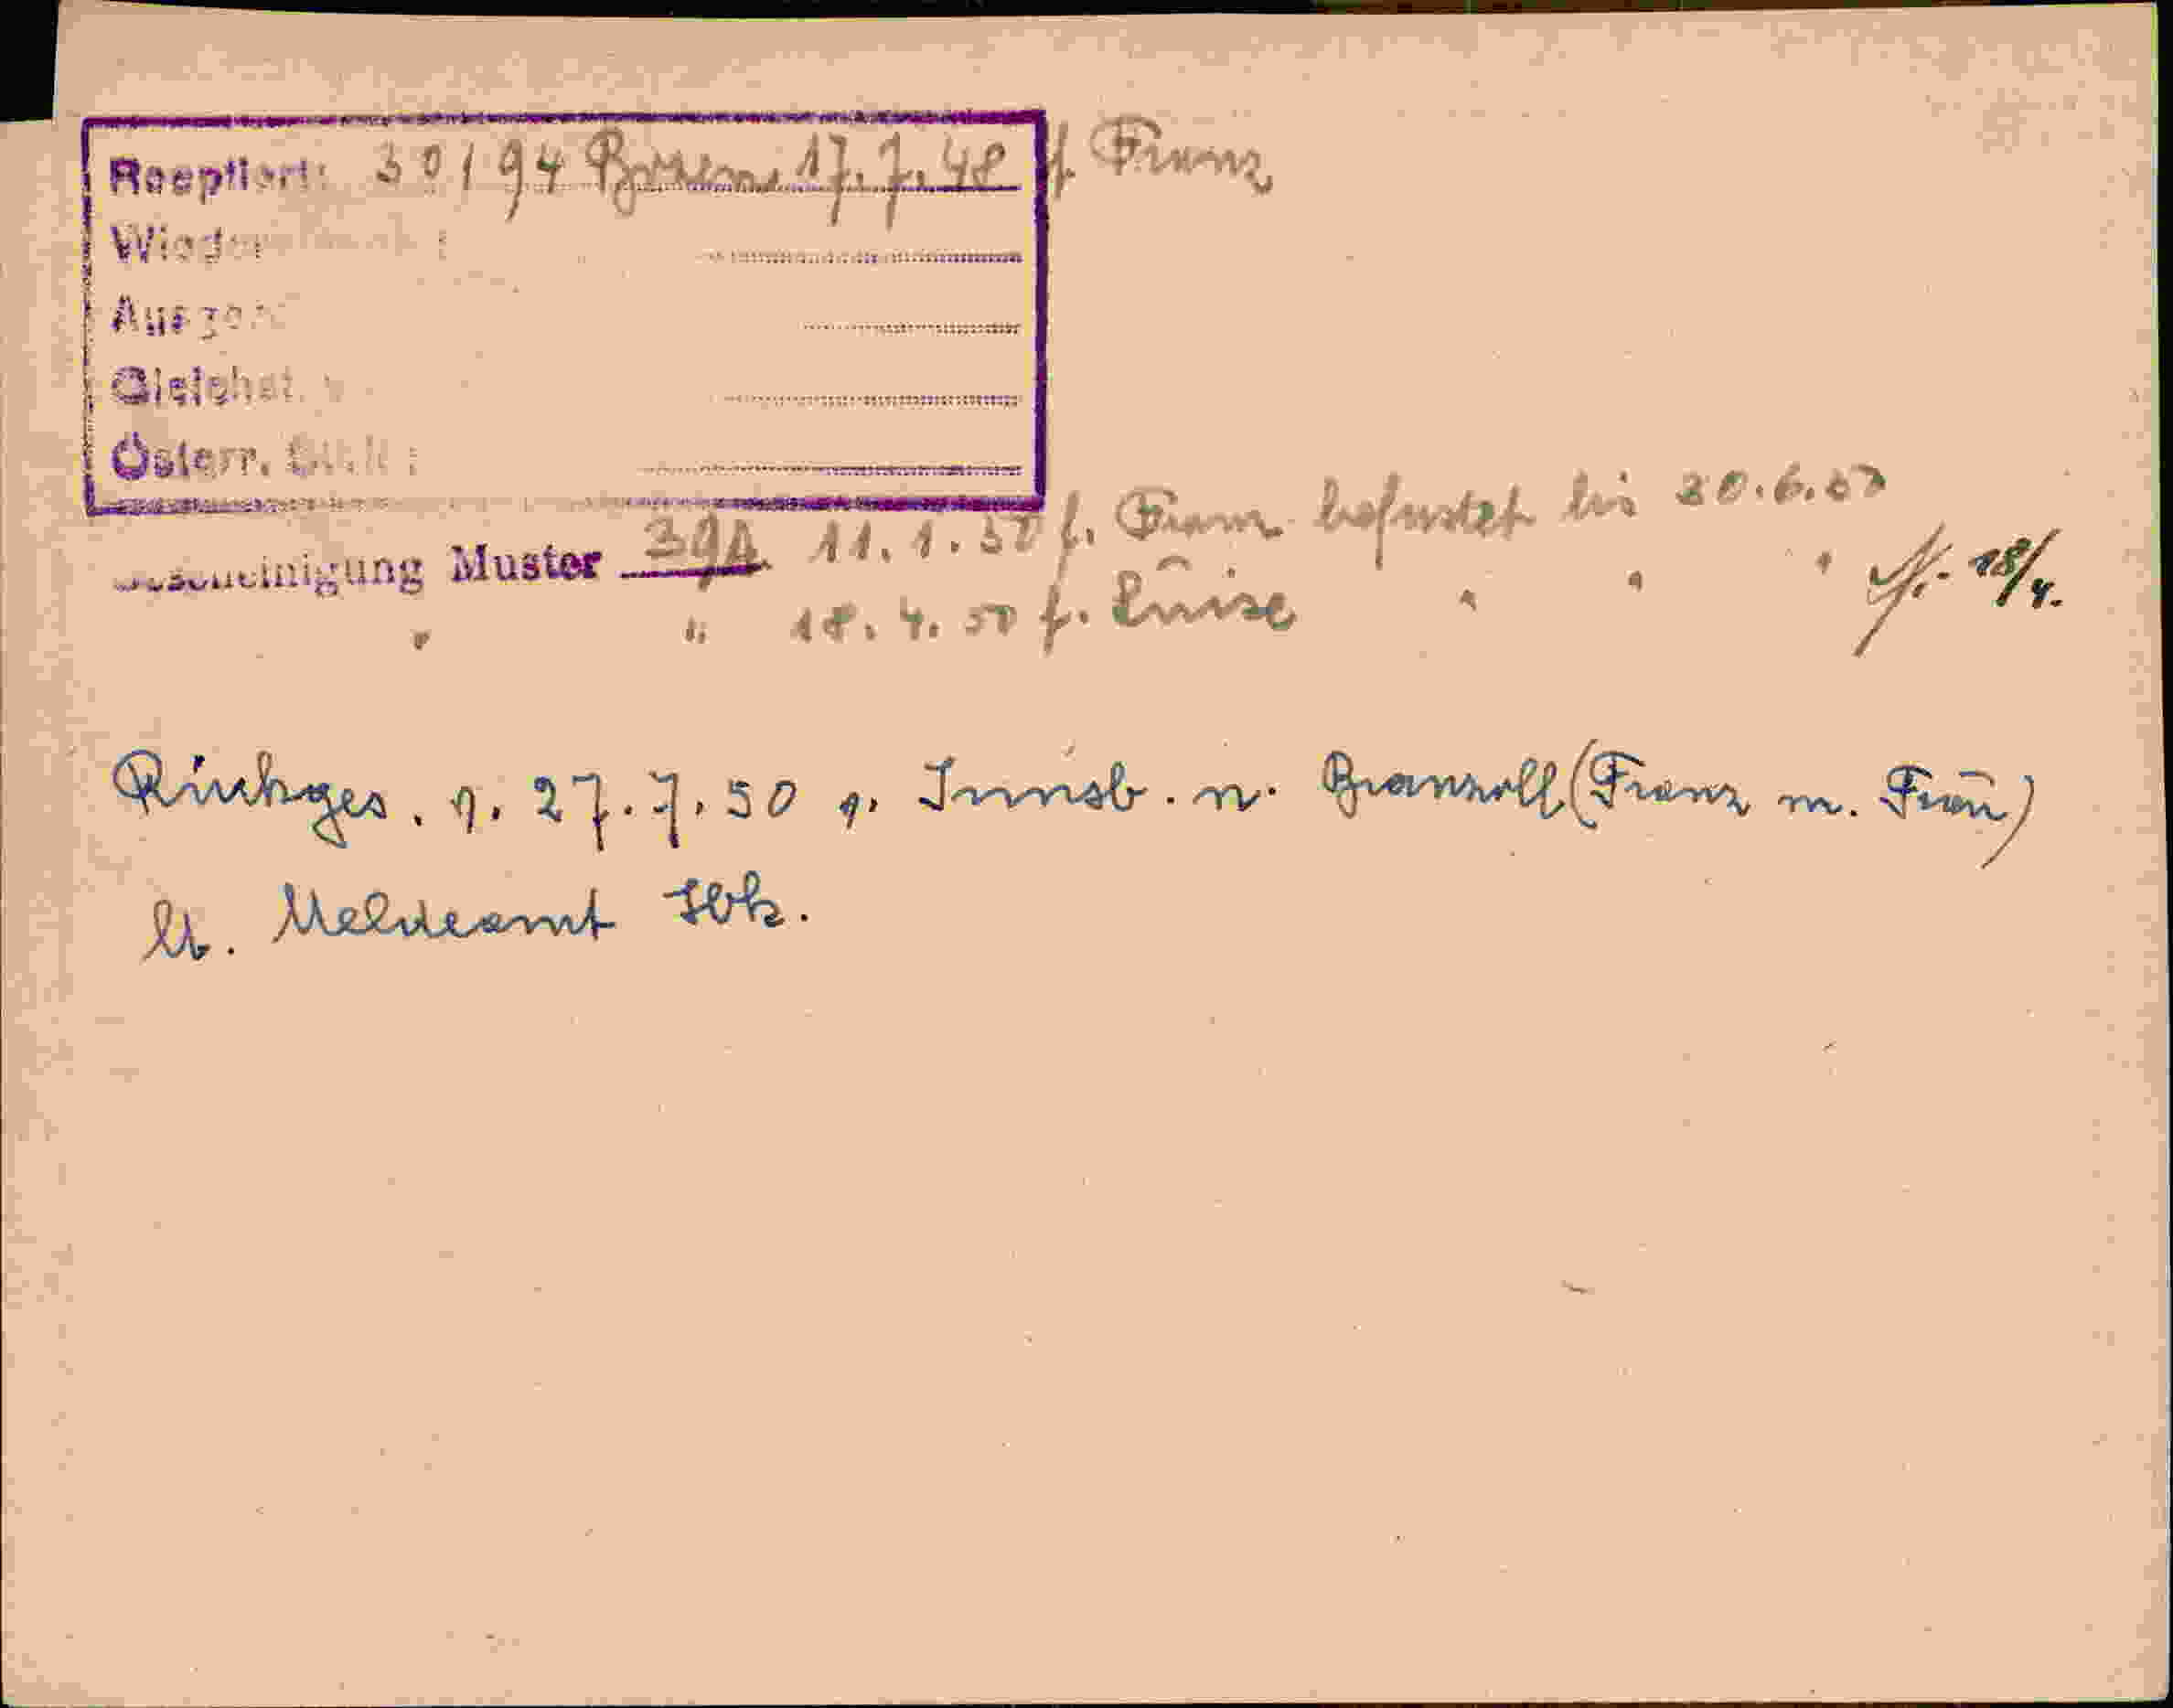 Reoptiert: 30194 Bozen 17.7.48 f. Franz
Wieder
Ausgew
Gleichst.
Österr.
Bescheinigung Muster 39A 11.1.50 f. Franz befristet bis 30.6.50
" " 18.4.50 f. Luise " " " 18/4.
Rückges. 27.7.50 v. Innsb. n. Branzoll (Franz m. Frau)
lt. Meldeamt Ibk.